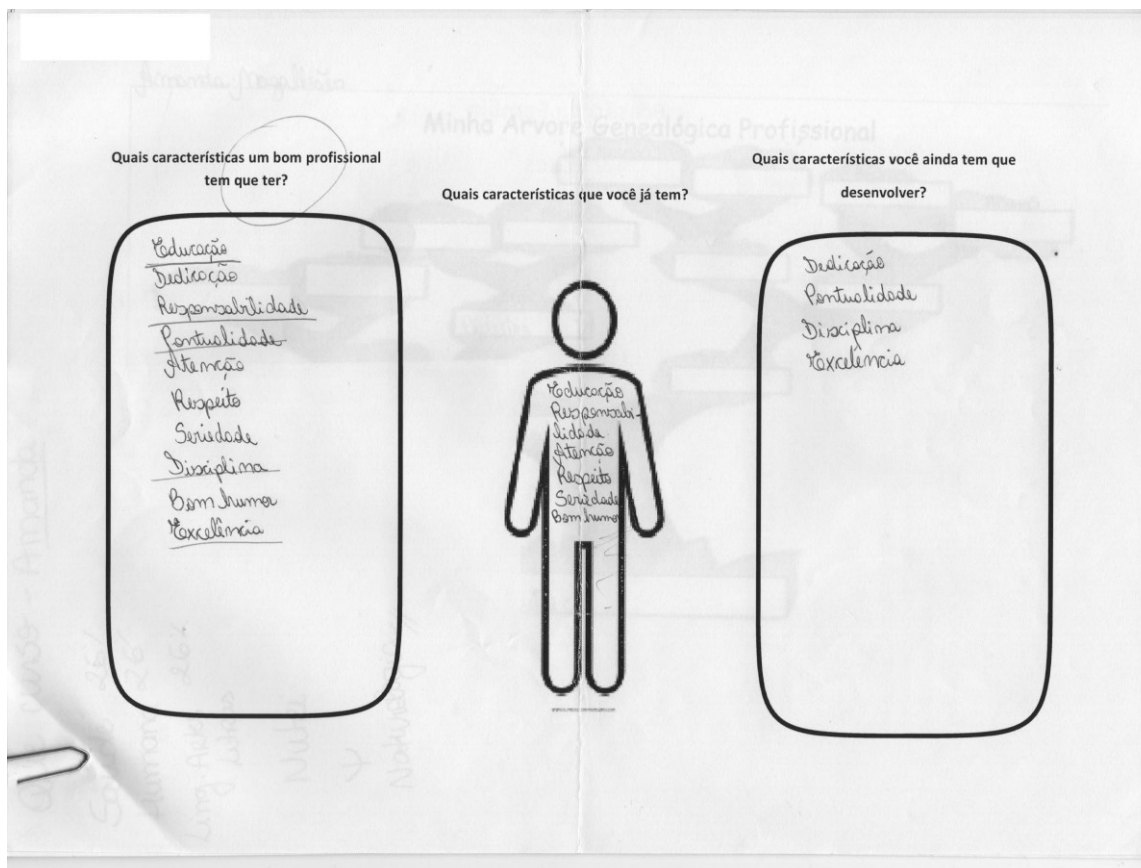 Amanda Magalhão
Minha Arvore Genealógica Profissional
Quais características um bom profissional
tem que ter?
Educação
Dedicação
Responsabilidade
Pontualidade
Atenção
Respeito
Seriedade
Disciplina
Bom humor
Excelência
Quais características que você já tem?
Educação
Responsabi-
lidade
Atenção
Respeito
Seriedade
Bom humor
Quais características você ainda tem que
desenvolver?
Dedicação
Pontualidade
Disciplina
Excelência